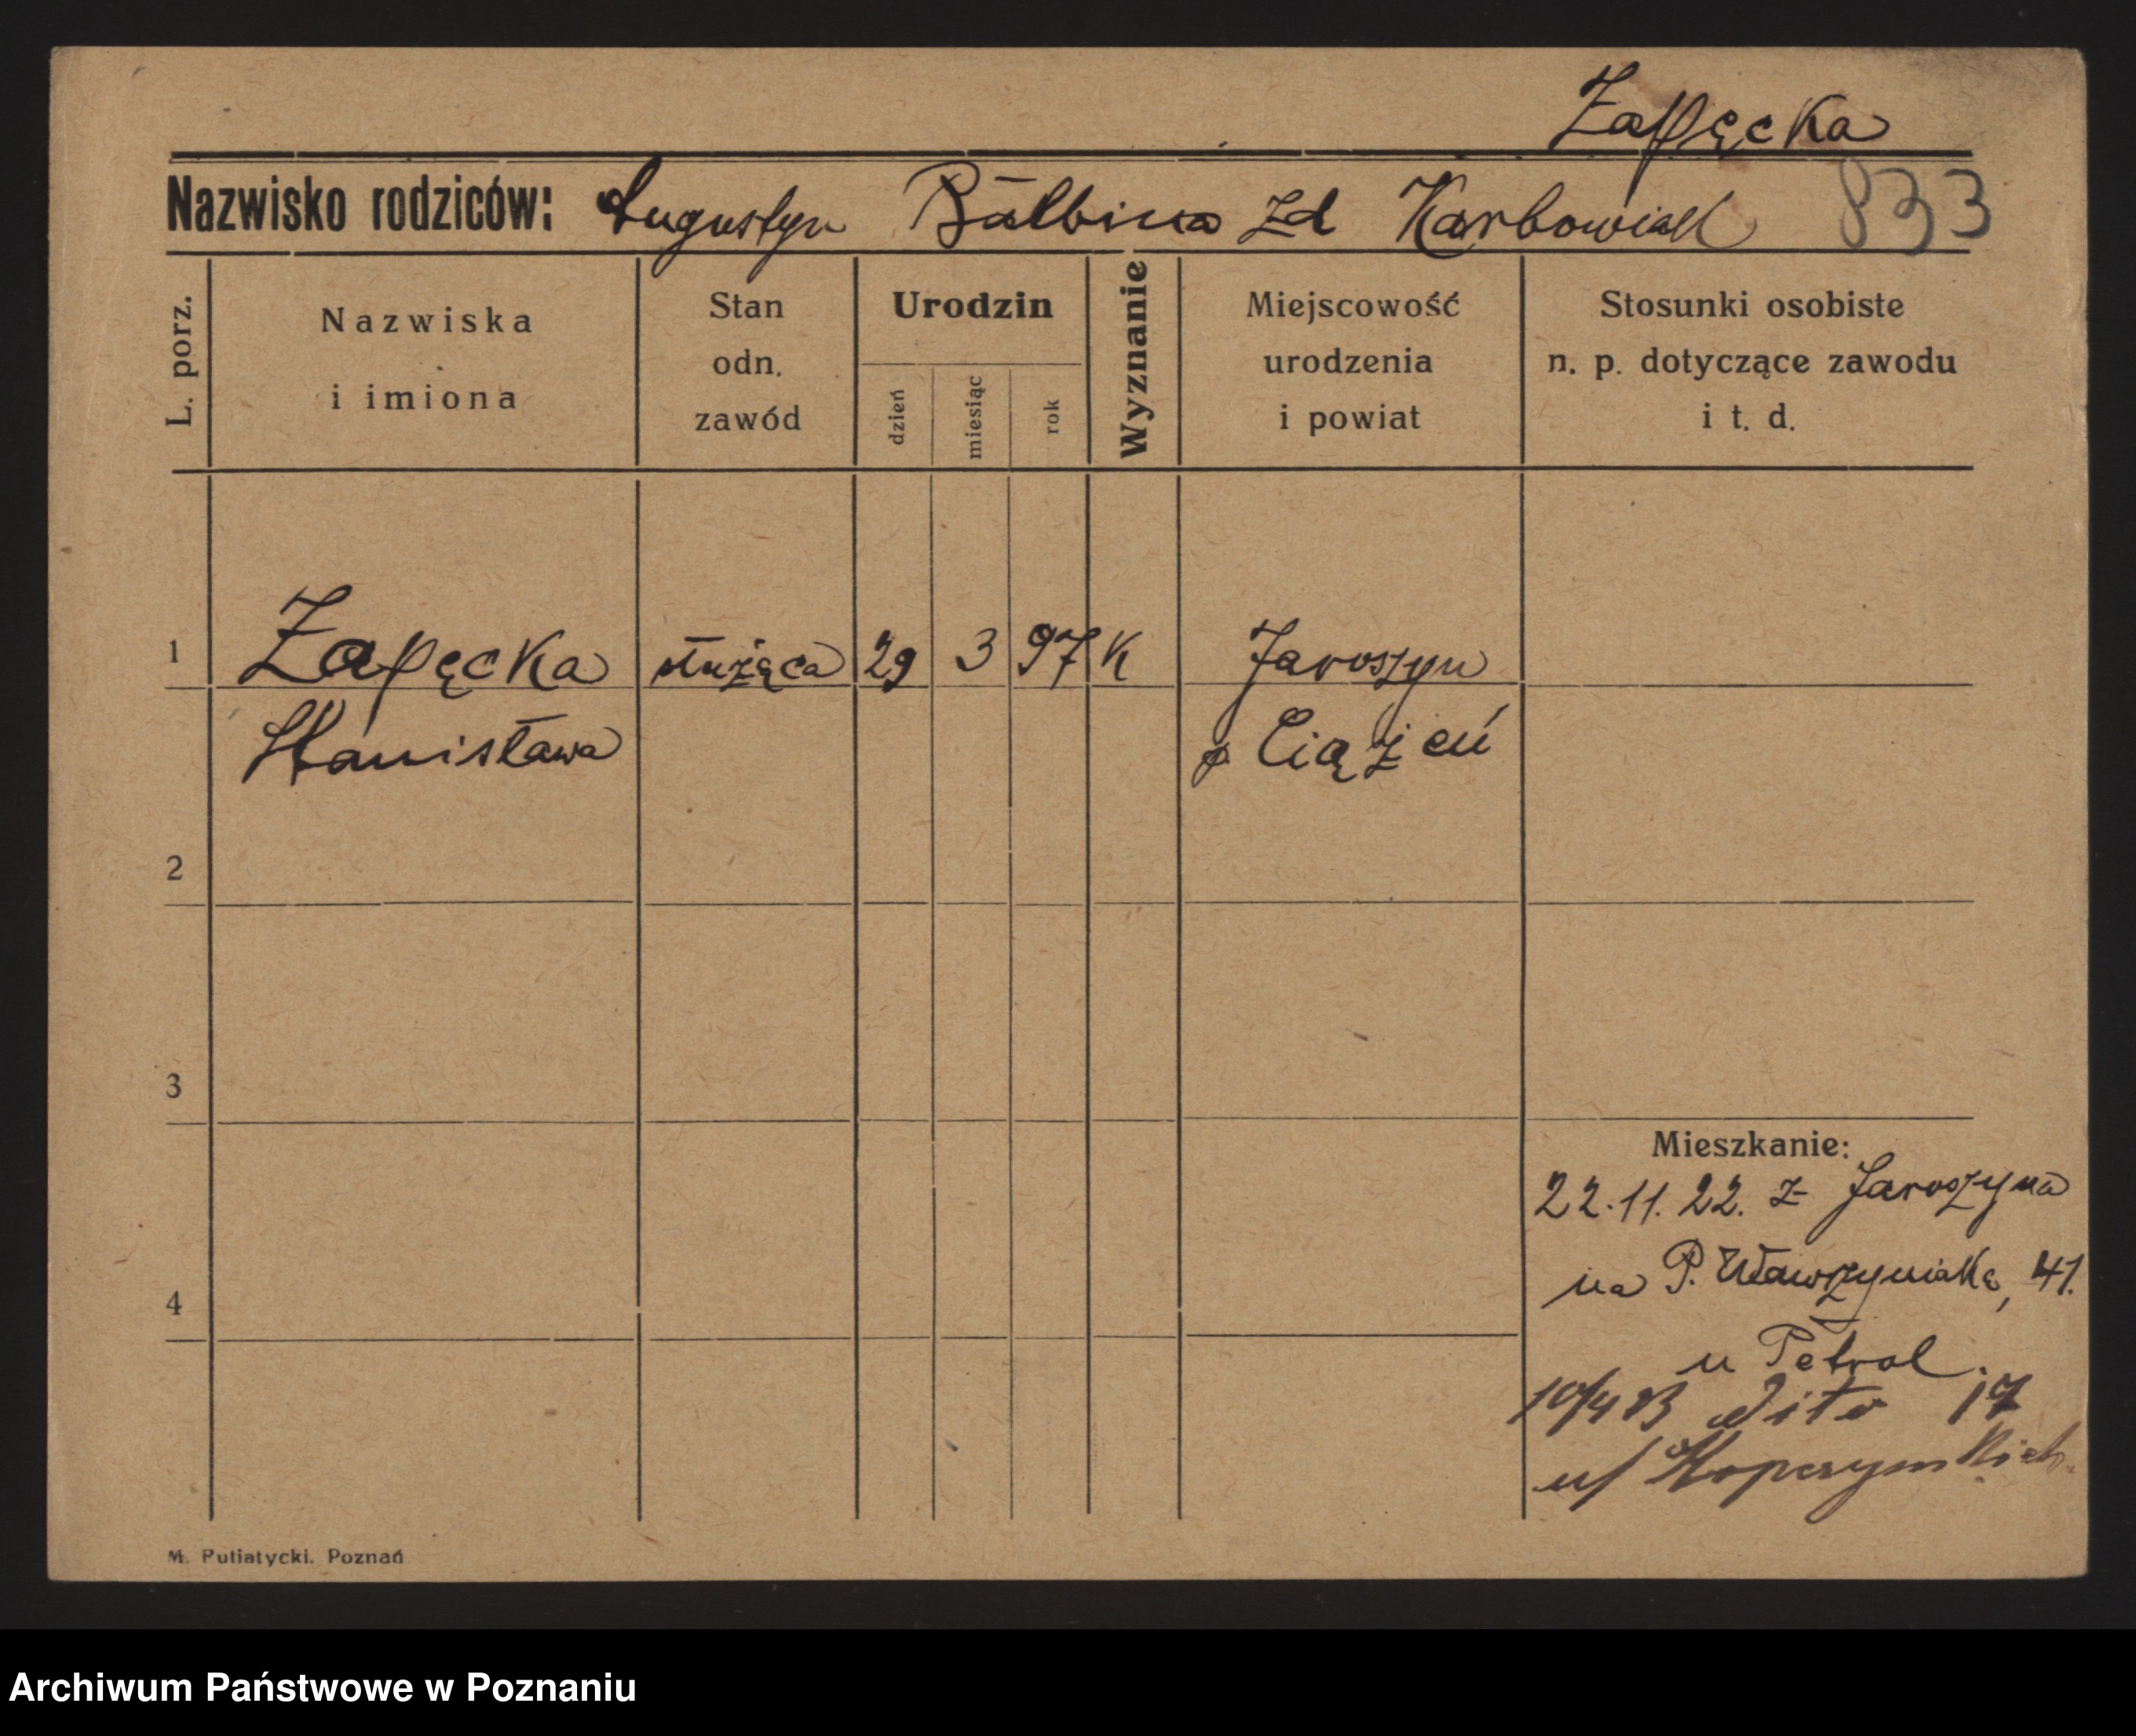 Zapęcka
Nazwisko rodziców: Augustyn Balbina zd Karbowiak 833
L. porz.
Nazwiska i imiona
Stan odn. zawód
Urodzin
dzień
miesiąc
rok
Wyznanie
Miejscowość urodzenia i powiat
Stosunki osobiste n. p. dotyczące zawodu i t. d.
1 Zapęcka służąca 29 3 97 K Jaroszyn
Stanisława p. Ciążeń
2
3
Mieszkanie:
22.11.22. z Jaroszyna
na P. Wawrzyniaka, 41.
4
u Petrol.
10/4 23 dito 17
u/
M. Putiatycki. Poznań
Archiwum Państwowe w Poznaniu